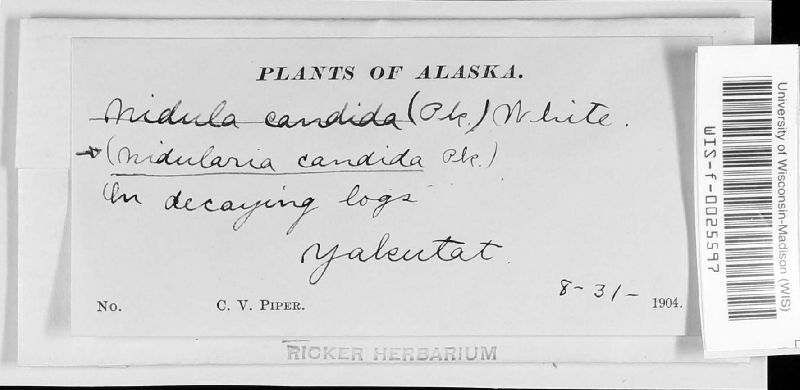 PLANTS OF ALASKA.
Nidula candida (Pk.) White.
(Nidularia candida Pk.)
On decaying logs
Yakutat
8-31- 1904.
No. C. V. PIPER.
RICKER HERBARIUM
University of Wisconsin-Madison (WIS)
WIS-f-0025597